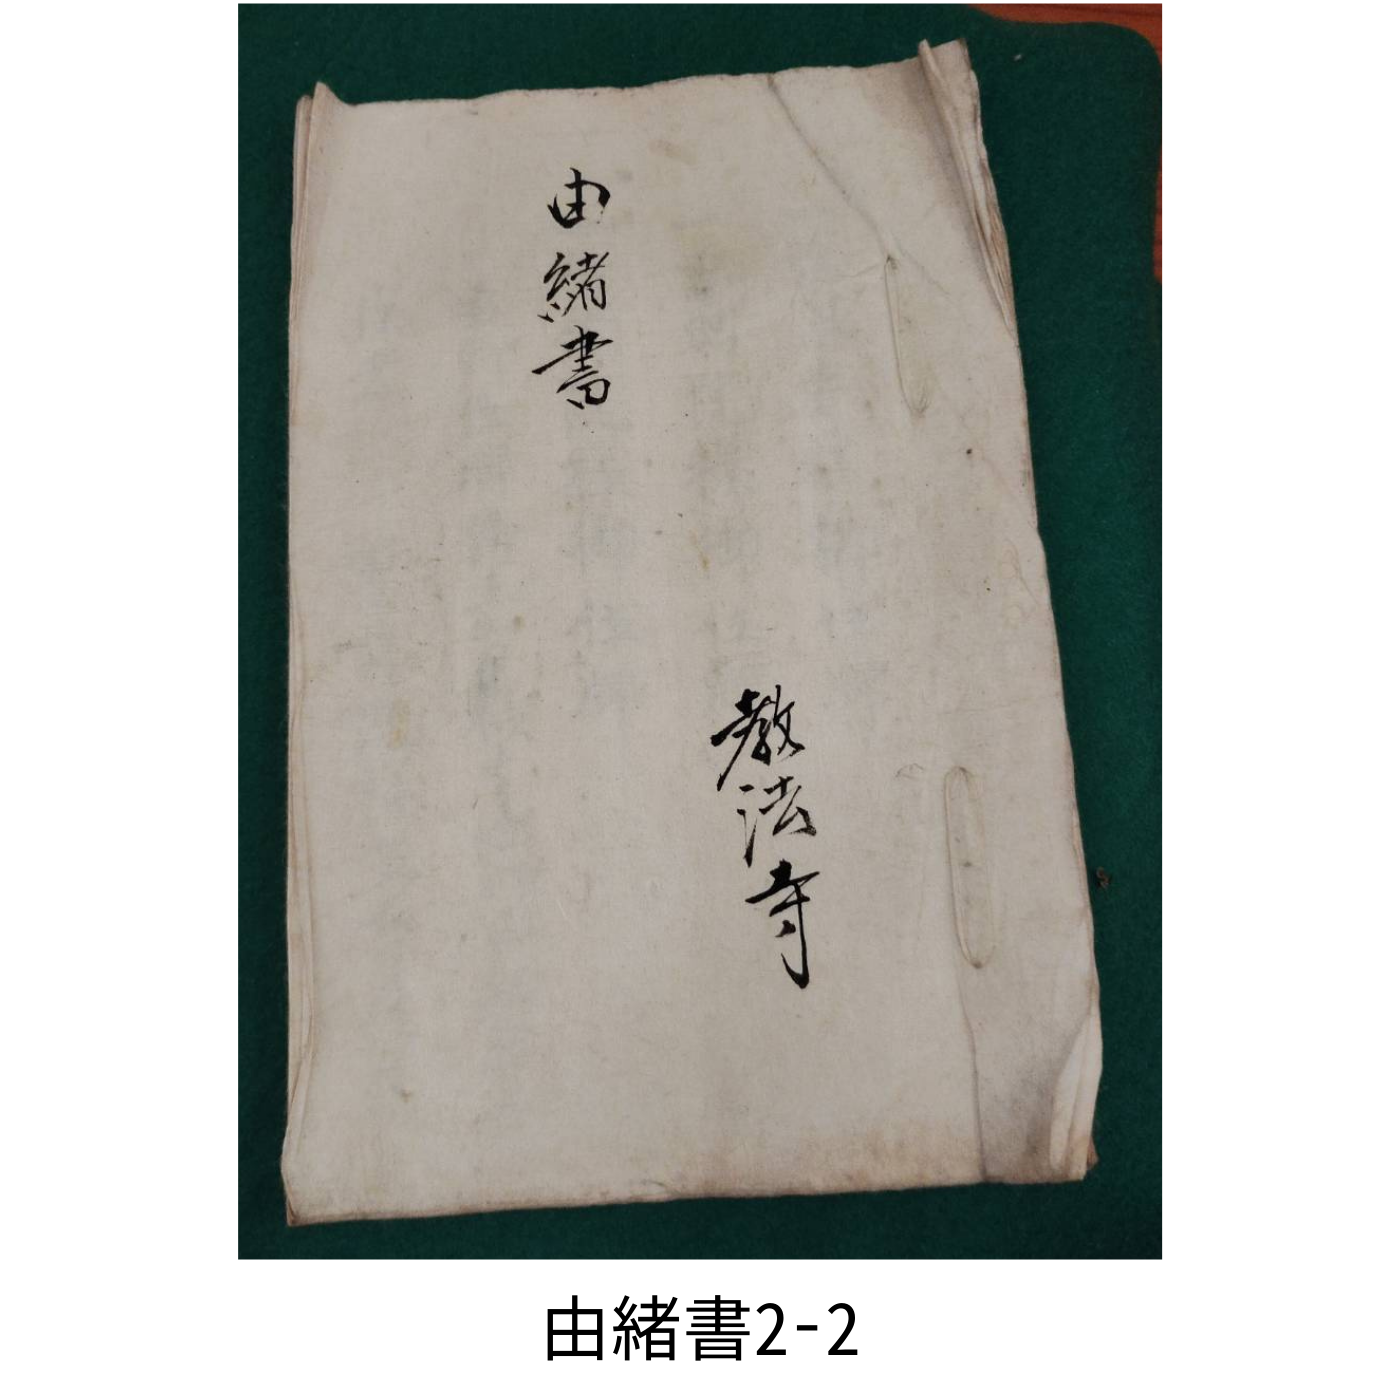 由緒書
教法寺
由緒書2-2